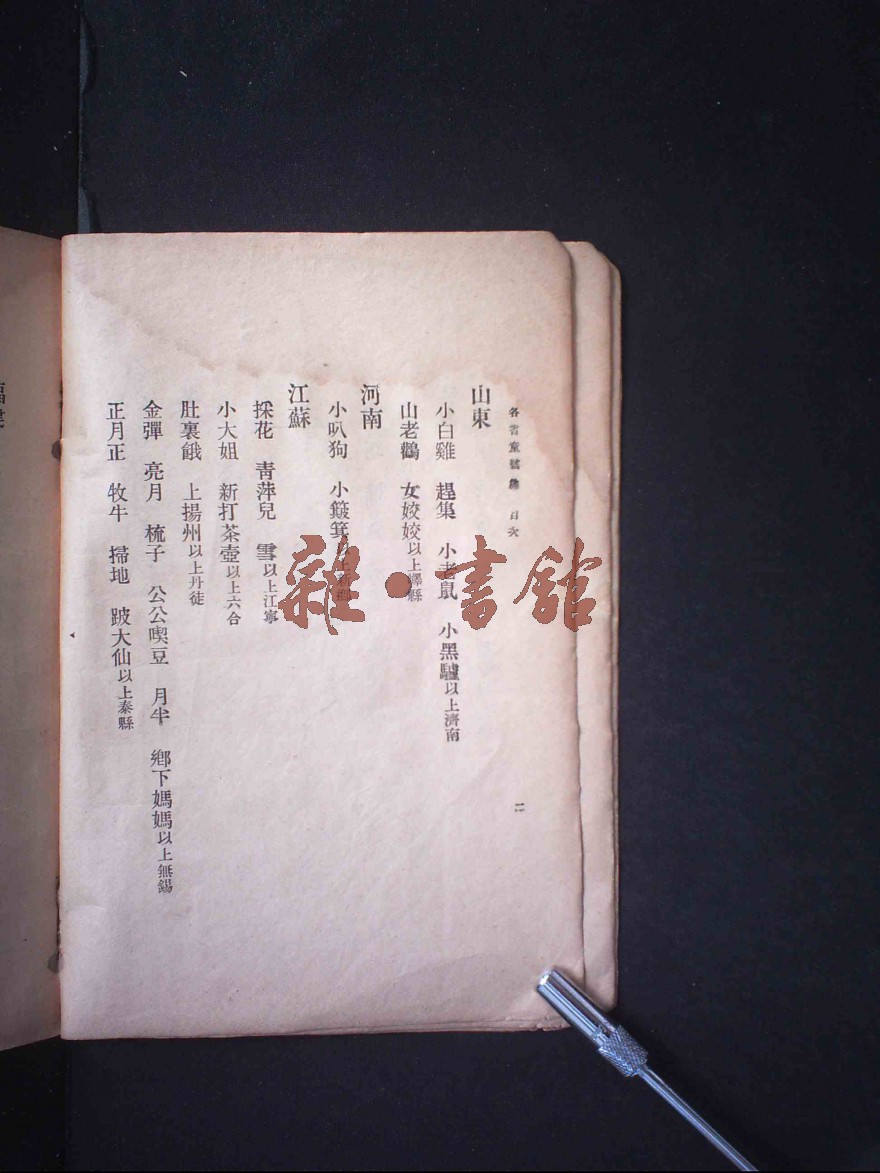 各省童謠集 目次
二
山東
小白雞 趕集 小老鼠 小黑驢以上濟南
山老鸛 女姣姣以上嶧縣
河南
小叭狗 小簸箕以上新鄉
江蘇
採花 青萍兒 雪以上江寧
小大姐 新打茶壺以上六合
肚裏餓 上揚州以上丹徒
金彈 亮月 梳子 公公喫豆 月半 鄉下媽媽以上無錫
正月正 牧牛 掃地 跛大仙以上泰縣
雜·書館